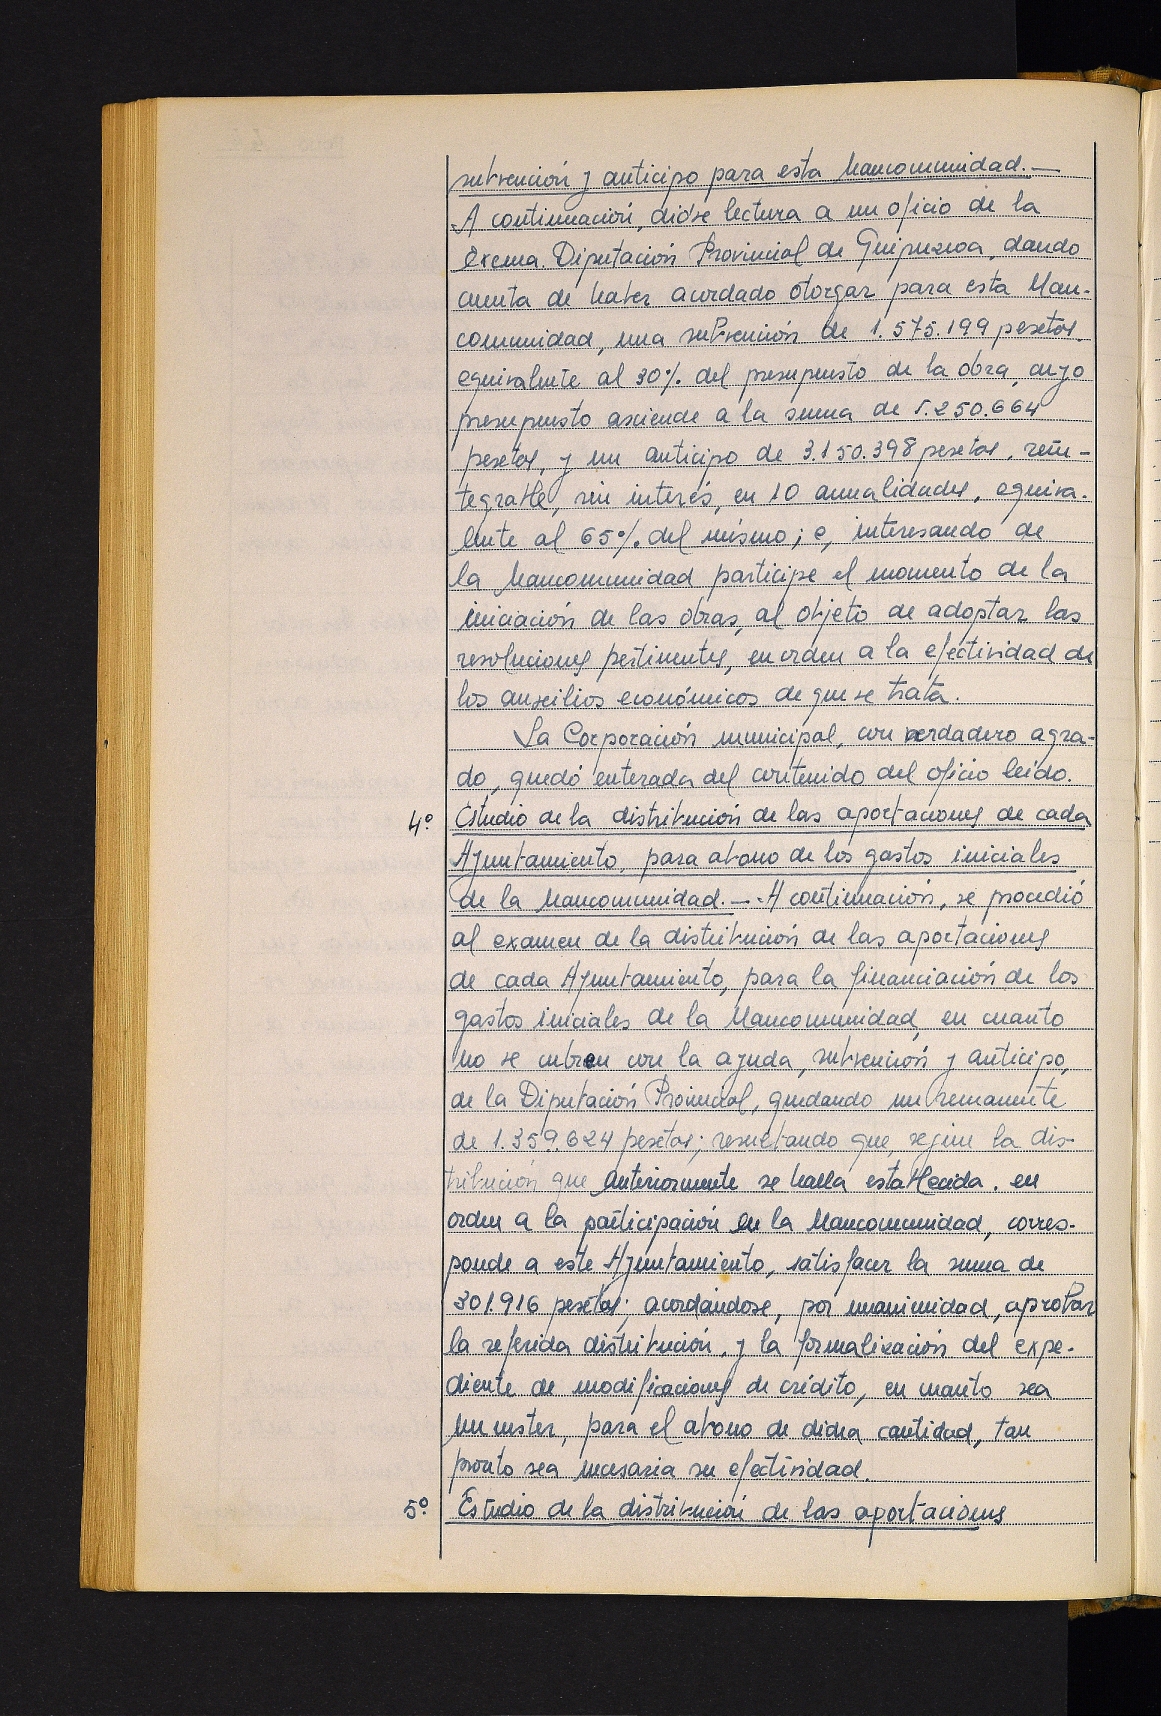 subvención y anticipo para esta Mancomunidad.—
A continuación, dióse lectura a un oficio de la
Excma. Diputación Provincial de Guipuzcoa, dando
cuenta de haber acordado otorgar para esta Man-
comunidad, una subvención de 1.575.199 pesetas.
equivalente al 30% del presupuesto de la obra, cuyo
presupuesto asciende a la suma de 5.250.664
pesetas, y un anticipo de 3.150.398 pesetas, rein-
tegrable, sin interés, en 10 anualidades, equiva-
lente al 65% del mismo; e, interesando de
la Mancomunidad participe el momento de la
iniciación de las obras, al objeto de adoptar las
resoluciones pertinentes, en orden a la efectividad de
los auxilios económicos de que se trata.
La Corporación municipal, con verdadero agra-
do, quedó enterada del contenido del oficio leido.
4º Estudio de la distribución de las aportaciones de cada
Ayuntamiento, para abono de los gastos iniciales
de la Mancomunidad.—. A continuación, se procedió
al examen de la distribución de las aportaciones
de cada Ayuntamiento, para la financiación de los
gastos iniciales de la Mancomunidad, en cuanto
no se cubren con la ayuda, subvención y anticipo,
de la Diputación Provincial, quedando un remanente
de 1.359.624 pesetas; resultando que, según la dis-
tribución que anteriormente se halla establecida. en
orden a la participación en la Mancomunidad, corres-
ponde a este Ayuntamiento, satisfacer la suma de
301.916 pesetas; acordándose, por unanimidad, aprobar
la referida distribución, y la formalización del expe-
diente de modificaciones de crédito, en cuanto sea
menester, para el abono de dicha cantidad, tan
pronto sea necesaria su efectividad.
5º. Estudio de la distribución de las aportaciones